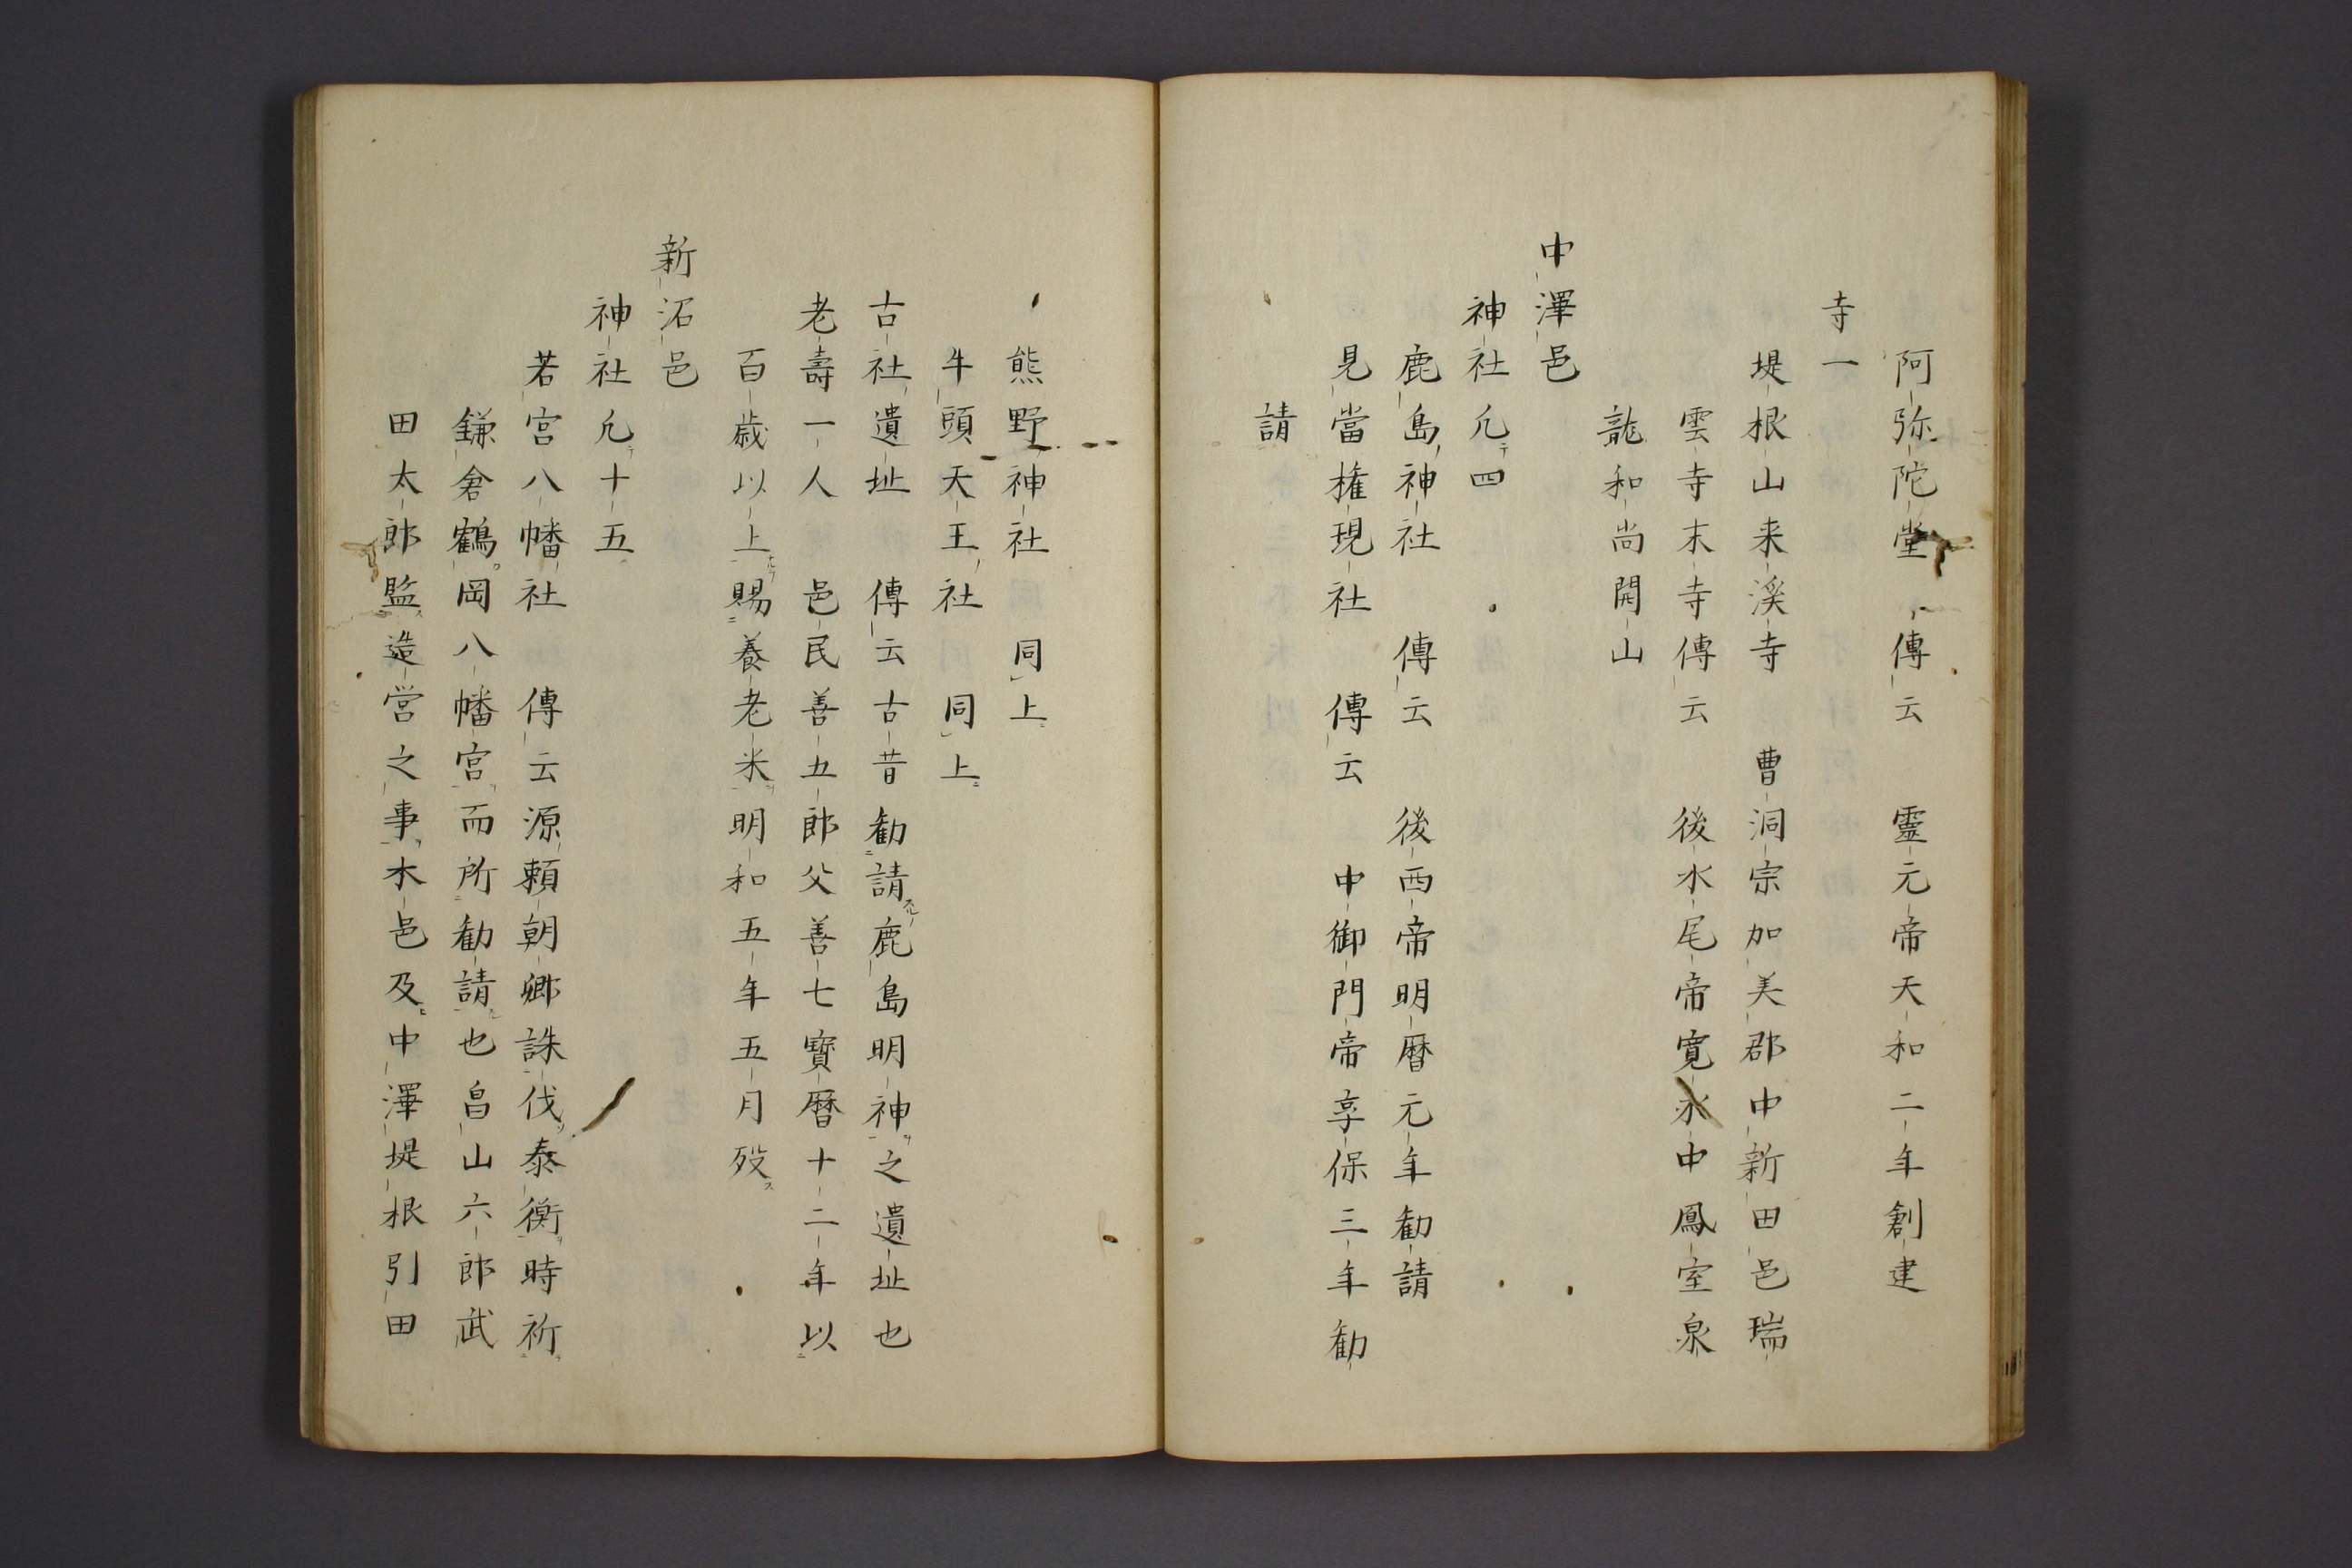 阿弥陀堂　傳云　靈元帝天和二年創建
寺一
堤根山来溪寺　曹洞宗加美郡中新田邑瑞
雲寺末寺傳云　後水尾帝寛永中鳳室泉
龍和尚開山
中澤邑
神社凢四
鹿島神社　傳云　後西帝明暦元年勧請
見當権現社　傳云　中御門帝享保三年勧
請
熊野神社　同上
牛頭天王社　同上
古社遺址　傳云古昔勧請鹿島明神之遺址也
老壽一人　邑民善五郎父善七寶暦十二年以
百歳以上賜養老米明和五年五月歿
新沼邑
神社凢十五
若宮八幡社　傳云源頼朝卿誅伐泰衡時祈
鎌倉鶴岡八幡宮而所勧請也畠山六郎武
田太郎監造営之事木邑及中澤堤根引田